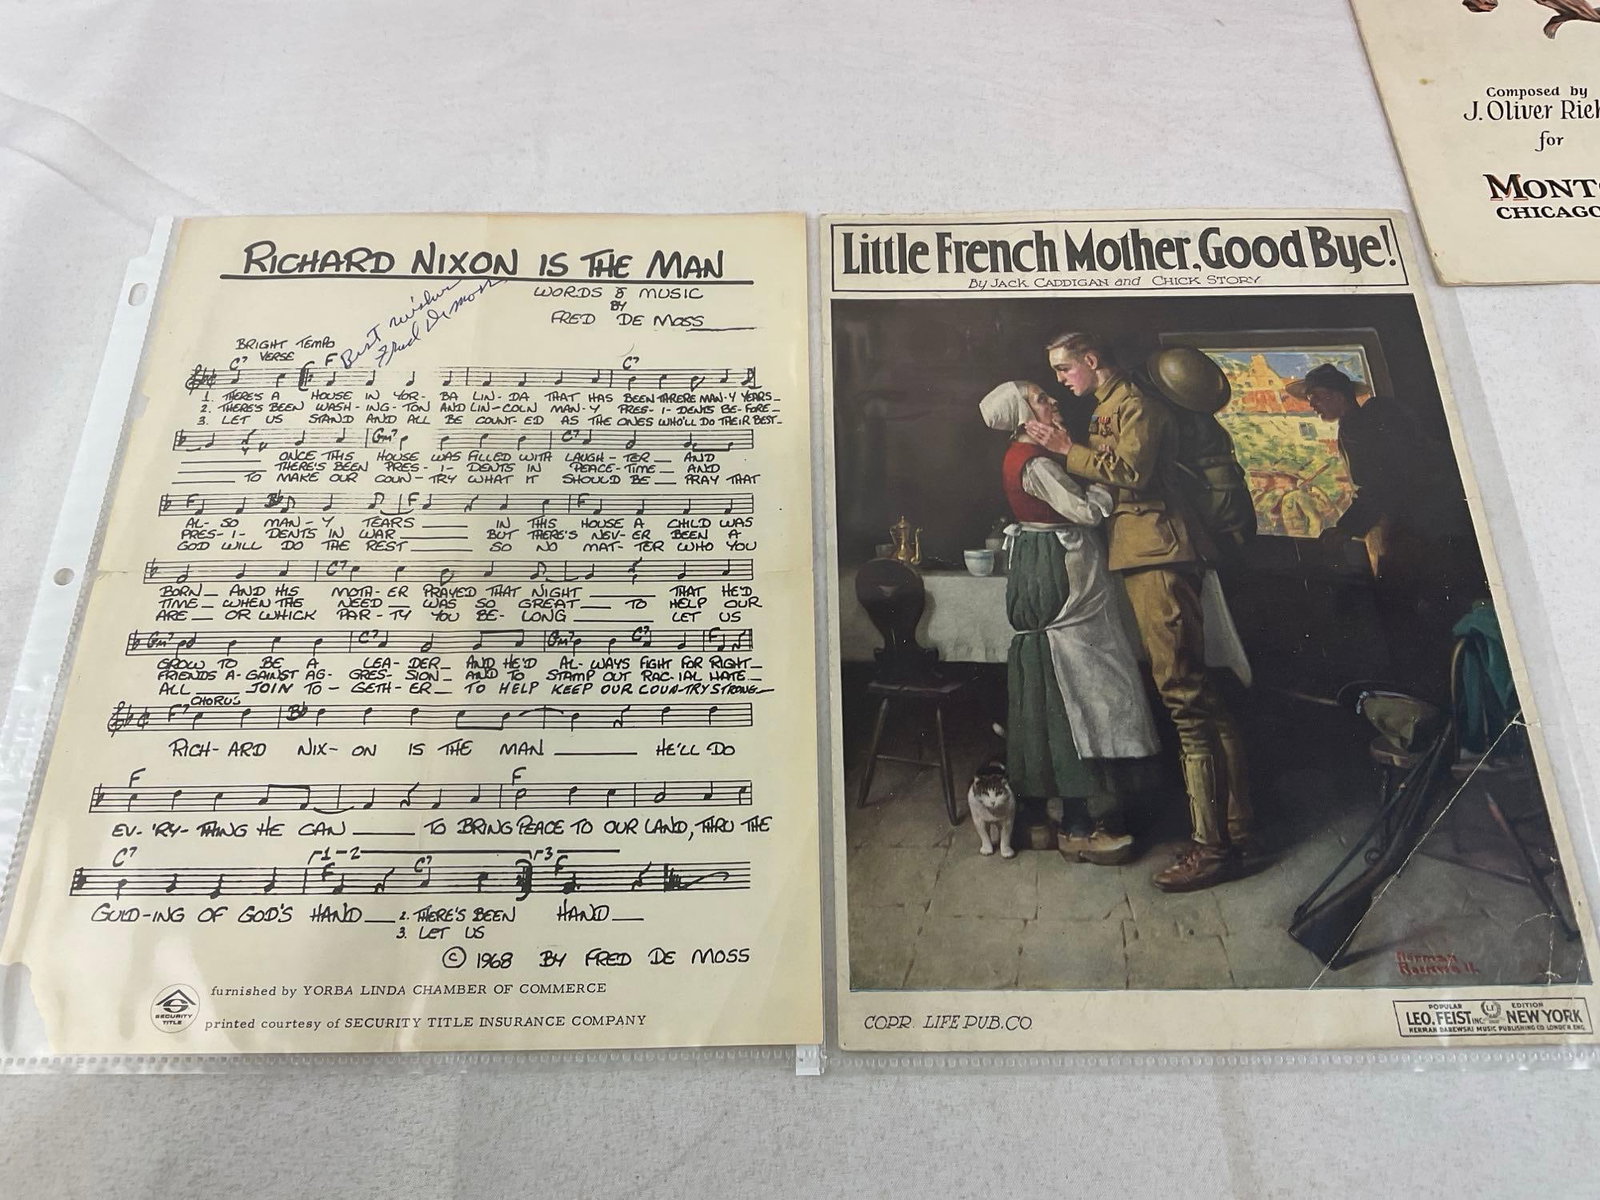 RICHARD NIXON IS THE MAN
WORDS & MUSIC
BY
FRED DE MOSS
Best wishes
Fred De Moss
BRIGHT TEMPO
C7 VERSE F C7
1. THERE'S A HOUSE IN YOR- BA LIN- DA THAT HAS BEEN THRERE MAN-Y YEARS_
2. THERE'S BEEN WASH-ING-TON AND LIN-COLN MAN-Y PRES-I-DENTS BE-FORE_
3. LET US STAND AND ALL BE COUNT-ED AS THE ONES WHO'LL DO THEIR BEST_
Gm7 C7
ONCE THIS HOUSE WAS FILLED WITH LAUGH-TER__ AND
THERE'S BEEN PRES-I-DENTS IN PEACE-TIME__ AND
TO MAKE OUR COUN-TRY WHAT IT SHOULD BE__ PRAY THAT
F Bb F F
AL-SO MAN-Y TEARS____ IN THIS HOUSE A CHILD WAS
PRES-I-DENTS IN WAR____ BUT THERE'S NEV-ER BEEN A
GOD WILL DO THE REST____ SO NO MAT-TER WHO YOU
C7
BORN__ AND HIS MOTH-ER PRAYED THAT NIGHT____ THAT HE'D
TIME__ WHEN THE NEED__ WAS SO GREAT____ TO HELP OUR
ARE__ OR WHICK PAR-TY YOU BE-LONG____ LET US
Gm7 C7 Gm7 C7 F
GROW TO BE A LEA-DER__ AND HE'D AL-WAYS FIGHT FOR RIGHT__
FRIENDS A-GAINST AG-GRES-SION__ AND TO STAMP OUT RAC-IAL HATE__
ALL____ JOIN TO-GETH-ER__ TO HELP KEEP OUR COUN-TRY STRONG__
CHORUS
F7 Bb
RICH-ARD NIX-ON IS THE MAN____ HE'LL DO
F F
EV-'RY-THING HE CAN____ TO BRING PEACE TO OUR LAND, THRU THE
C7 1-2 F C7 3 F
GUID-ING OF GOD'S HAND__ 2. THERE'S BEEN HAND__
3. LET US
© 1968 BY FRED DE MOSS
furnished by YORBA LINDA CHAMBER OF COMMERCE
SECURITY
TITLE
printed courtesy of SECURITY TITLE INSURANCE COMPANY
Little French Mother, Good Bye!
By JACK CADDIGAN and CHICK STORY
Norman
Rockwell
COPR. LIFE PUB. CO.
POPULAR EDITION
LEO. FEIST INC. NEW YORK
HERMAN DAREWSKI MUSIC PUBLISHING CO. LONDON, ENG.
Composed by
J. Oliver
for
CHICAGO